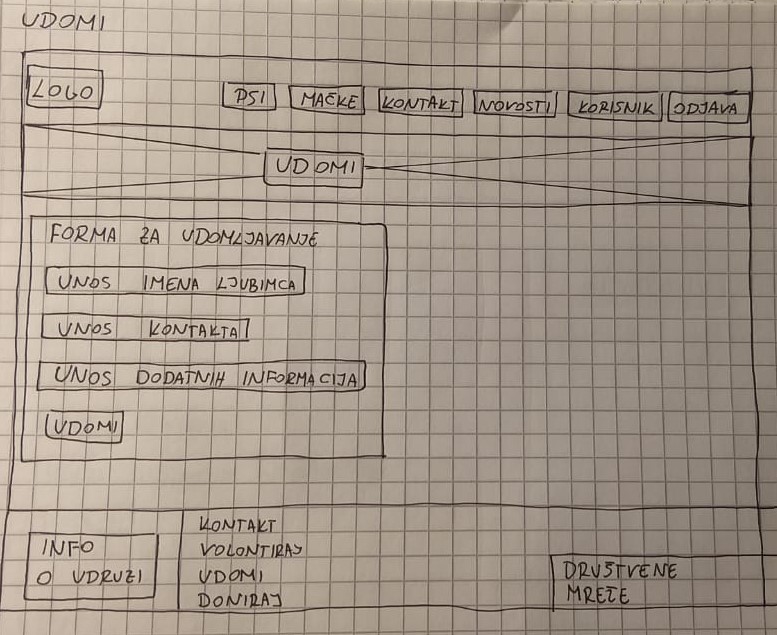 UDOMI
LOGO
PSI
MAČKE
KONTAKT
NOVOSTI
KORISNIK
ODJAVA
UDOMI
FORMA ZA UDOMLJAVANJE
UNOS IMENA LJUBIMCA
UNOS KONTAKTA
UNOS DODATNIH INFORMACIJA
UDOMI
INFO
O UDRUZI
KONTAKT
VOLONTIRAJ
UDOMI
DONIRAJ
DRUŠTVENE
MREŽE